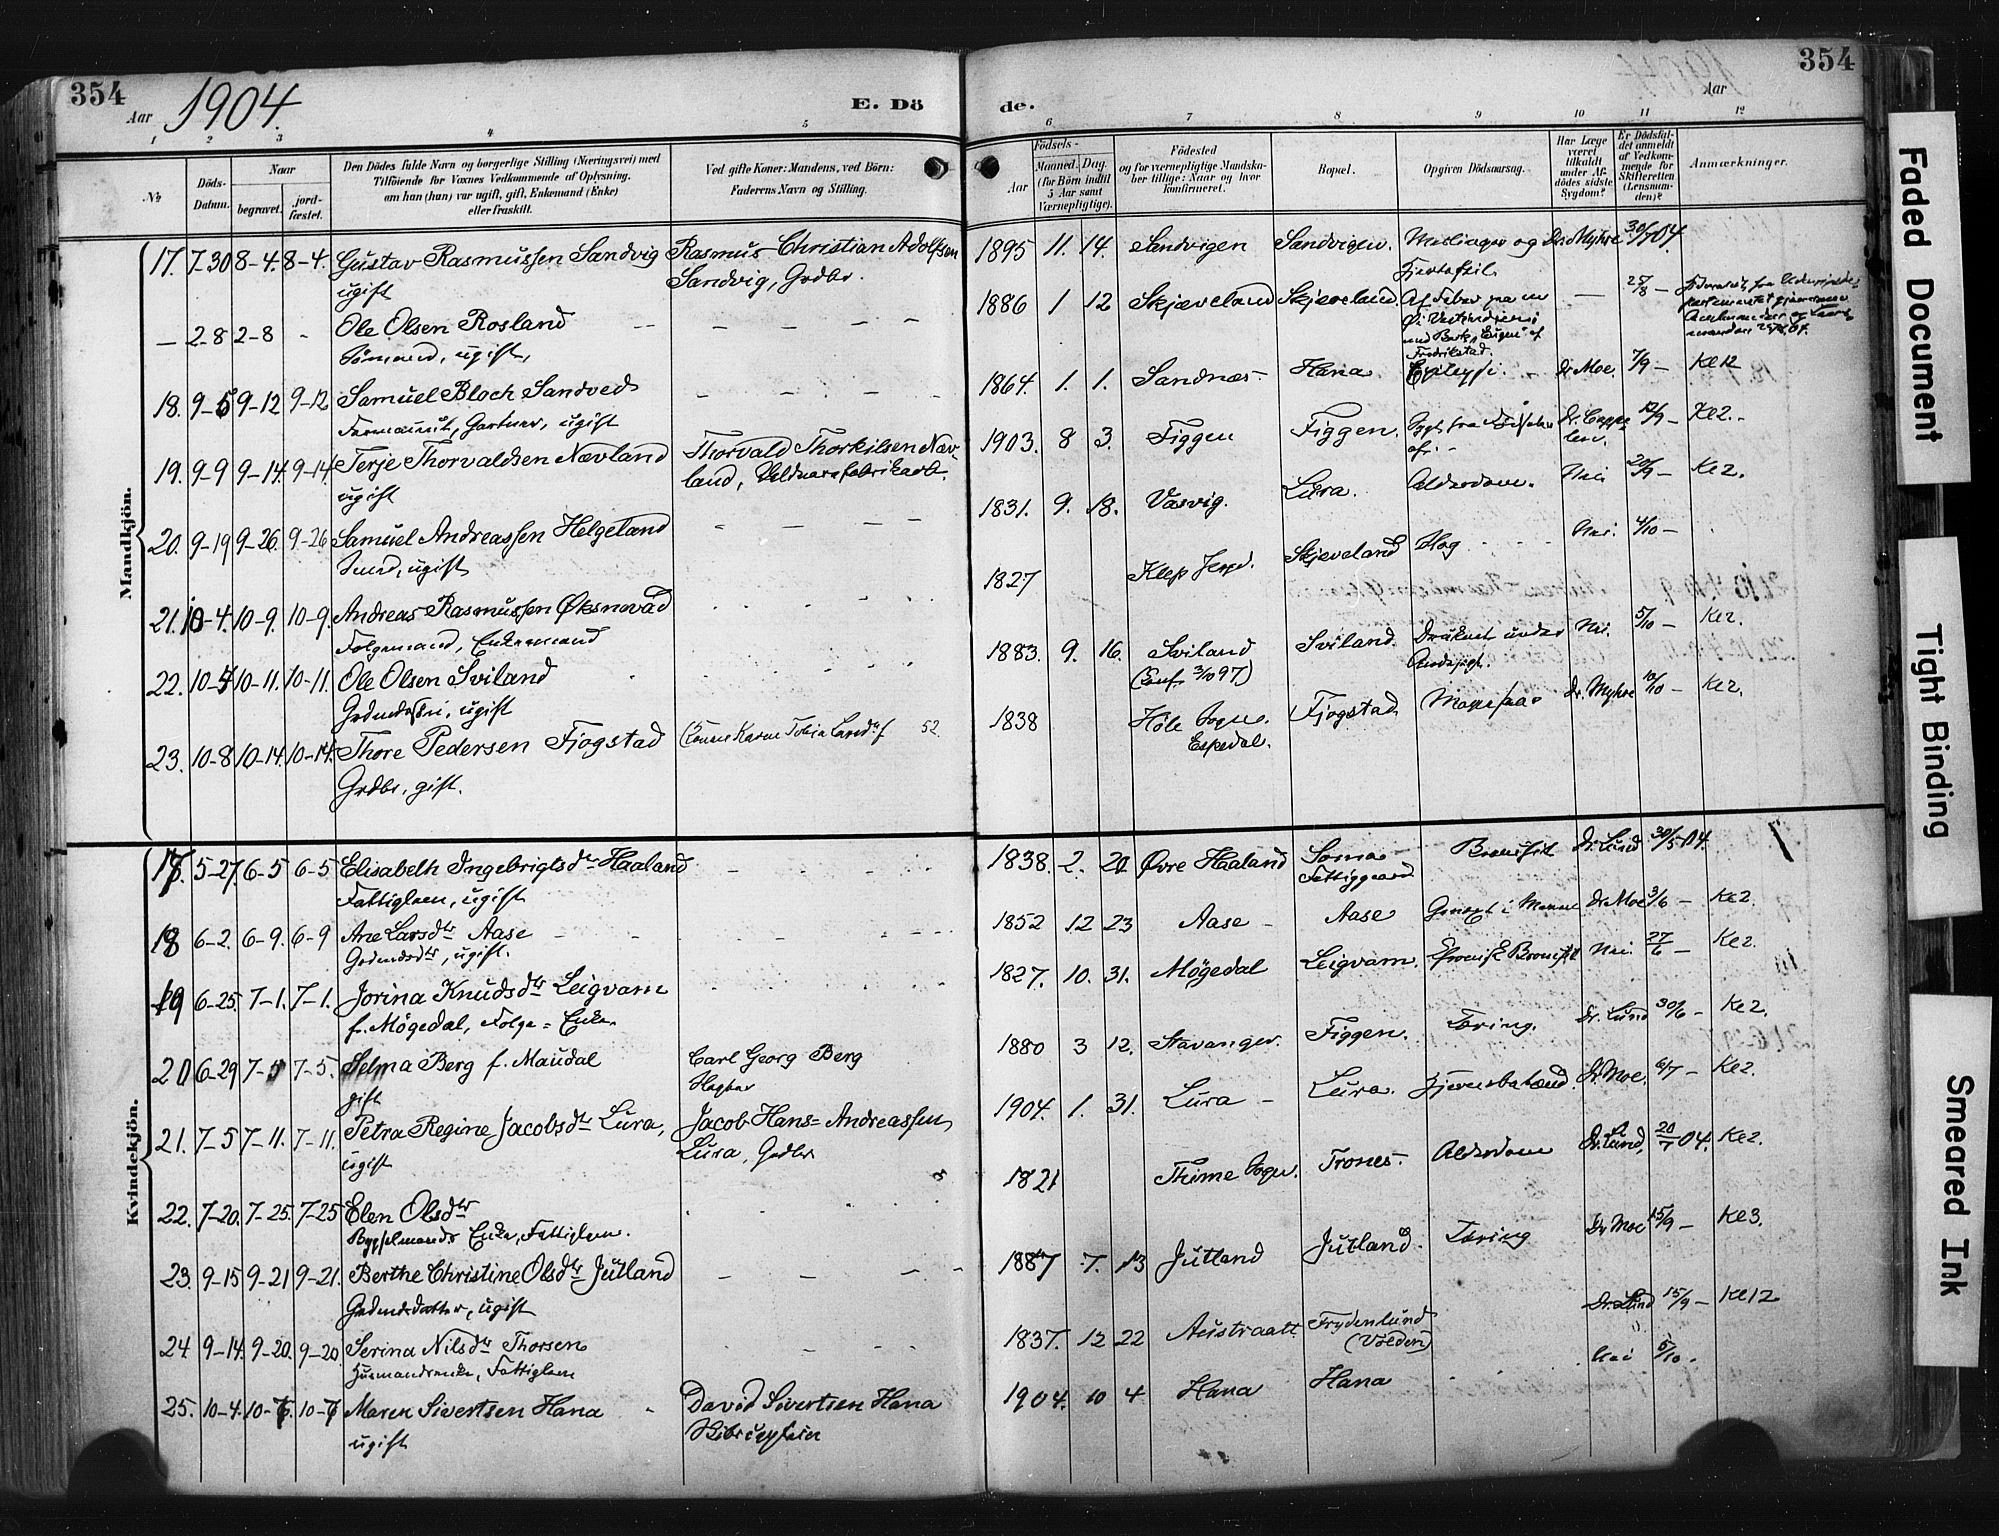 354
354
Aar 1904.
E. Dö
de.
Aar
1 2 3 4 5
6 7 8 9 10 11 12
№
Döds-Datum.
Naar
begravet.
jord-fæstet.
Den Dödes fulde Navn og borgerlige Stilling (Næringsvei) med
Tilföiende for Voxnes Vedkommende af Oplysning,
om han (hun) var ugift, gift, Enkemand (Enke)
eller fraskilt.
Ved gifte Koner: Mandens, ved Börn:
Faderens Navn og Stilling.
Födsels-
Aar
Maaned. Dag.
(for Börn indtil
5 Aar samt
Værnepligtige).
Födested
og for værnepligtige Mandska-
ber tillige: Naar og hvor
konfirmeret.
Bopæl.
Opgiven Dödsaarsag.
Har Læge
været
tilkaldt
under Af-
dödes sidste
Sygdom?
Er Dödsfal-
det anmeldt
af Vedkom-
mende for
Skifteretten
(Lensman-
den)?
Anmærkninger.
Mandkjön.
17. 7-30 8-4. 8-4. Gustav Rasmussen Sandvig Rasmus Christian Adolfsen 1895 11. 14. Sandvigen Sandvigen. Meslinger og Dr. Myhre 30/7 04.
ugift Sandvig, Grdbr. Hjertefeil.
— 2-8 2-8 - Ole Olsen Rosland — — — — 1886 1 12 Skjæveland Skjæveland. Af Feber paa en — 25/8 —
Sømand, ugift, Ø i Vestindien
Fredrikstad.
18. 9-5 9-12 9-12 Samuel Bloch Sandved — — — — 1864. 1. 1. Sandnæs - Hana Epilepsi. - Dr. Moe. 7/9 — Kl 12
Gartner, ugift
19. 9-9 9-14. 9-14. Terje Thorvaldsen Nævland Thorvald Thorkilsen Næv- 1903. 8 3. Figgen Figgen. Dr. Cappe- 12/9 — Kl 2. -
ugift land, Uldvarefabrikarb. len.
20. 9-19 9-26. 9-26 Samuel Andreassen Helgeland - — — — 1831. 9. 18. Vasvig. Lura. Alderdom. Nei 20/9 — Kl 2.
ugift
21. 10-4. 10-9. 10-9. Andreas Rasmussen Øksnevad 1827 Klep Skjæveland Slag Nei. 4/10 —
Folgemand, Enkemand
22. 10-4 10-11. 10-11. Ole Olsen Sviland 1883. 9. 16. Sviland Sviland. Druknet under Nei. 5/10 — Kl 2.
ugift (Conf. 3/10 97) Andejagt.
23. 10-8 10-14. 10-14. Thore Pedersen Fjogstad 52. 1838 Höle Sogn. Fjogstad Dr. Myhre 10/10 — Kl 2.
Grdbr. gift. Espedal.
Kvindekjön.
17. 5-27. 6-5 6-5 Elisabeth Ingebrigtsdtr Haaland - - - - 1838. 2. 20 Øvre Haaland Soma Bronchit Dr. Lund 30/5 04.
Fattiglem, ugift Fattiggaard
18 6-2. 6-9. 6-9 Ane Larsdtr Aase 1852 12 23 Aase - Aase Dr. Moe 3/6 — Kl 2.
Grdmdsdtr, ugift.
19 6-25. 7-1. 7-1. Jorina Knudsdtr Leigvam 1827. 10. 31. Mögedal Leigvam. Kronisk Bronchit Nei 27/6 — Kl 2.
f. Mögedal, Folge = Enke.
20 6-29 7-5 7-5. Selma Berg f. Maudal Carl Georg Berg 1880 3 12. Stavanger. Figgen. Tæring. Dr. Lund 30/6 — Kl 2.
gift
21. 7-5 7-11. 7-11. Petra Regine Jacobsdtr Lura, Jacob Hans = Andreassen 1904. 1. 31. Lura - Lura. Hjernebetænd. Dr. Moe. 6/7 — Kl 2.
ugift Lura, Grdbr
22. 7-20. 7-25. 7-25 Elen Olsdtr 1821 Thime Sogn. Trones. Alderdom Dr. Lund, 20/7 04. Kl 2.
Bygselmands Enke, Fattiglem.
23. 9-15 9-21 9-21. Berthe Christine Olsdtr Jutland — — — — 1887 7. 13 Jutland Jutland Tæring Dr. Moe 15/9 — Kl 3.
Grdmdsdatter, ugift
24 9-14. 9-20. 9-20. Serina Nilsdtr Thorsen 1837. 12 22 Austraatt Frydenlund Dr. Lund 15/9 — Kl 12
Husmandsenke, Fattiglem (Volden)
25. 10-4. 10-7. 10-7 Maren Sivertsen Hana David Sivertsen Hana 1904. 10 4 Hana Hana Nei 5/10 -
ugift
Faded Document
Tight Binding
Smeared Ink